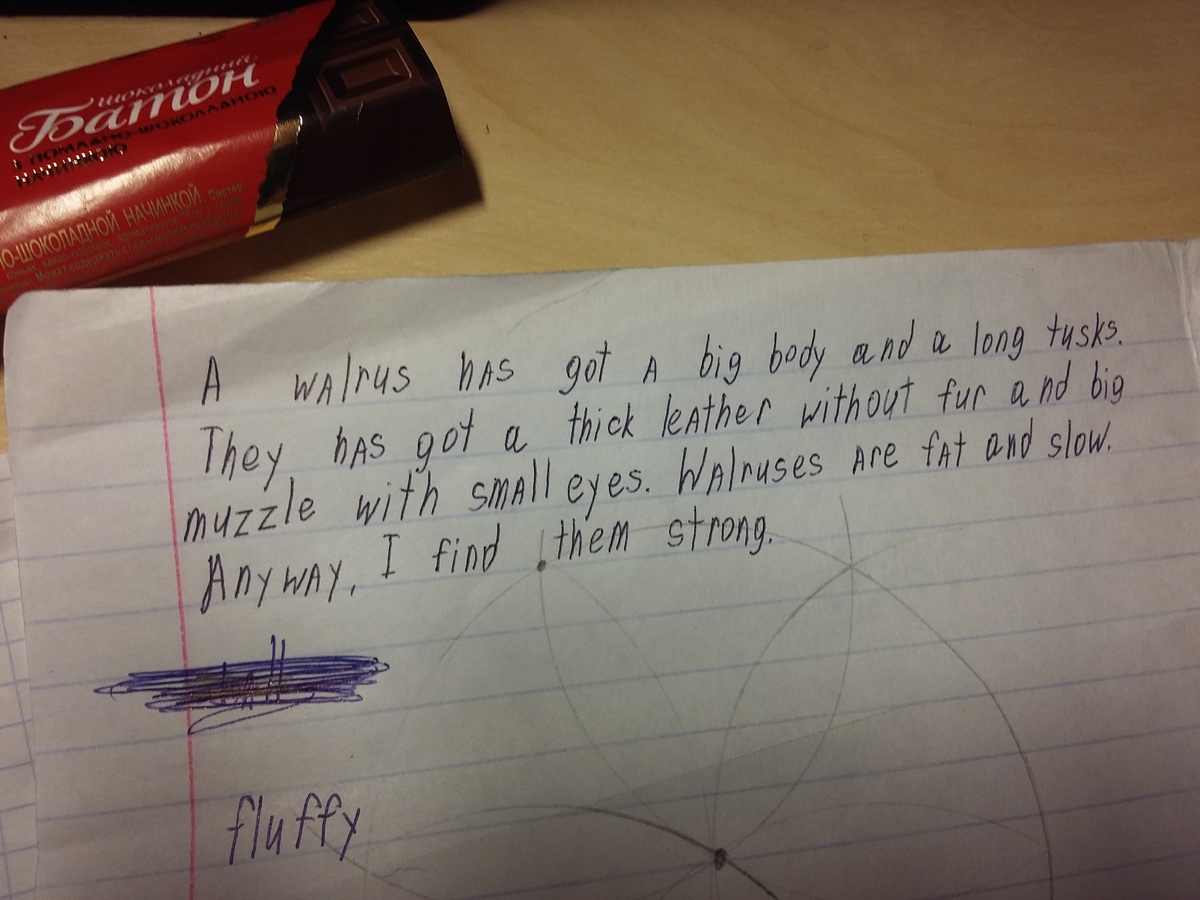 шоколадний
Батон
З ПОМАДНО-ШОКОЛАДНОЮ
НАЧИНКОЮ
О-ШОКОЛАДНОЙ НАЧИНКОЙ Состав
Может содержать следы
A walrus has got a big body and a long tusks.
They has got a thick leather without fur and big
muzzle with small eyes. Walruses are fat and slow.
Anyway, I find them strong.
fluffy